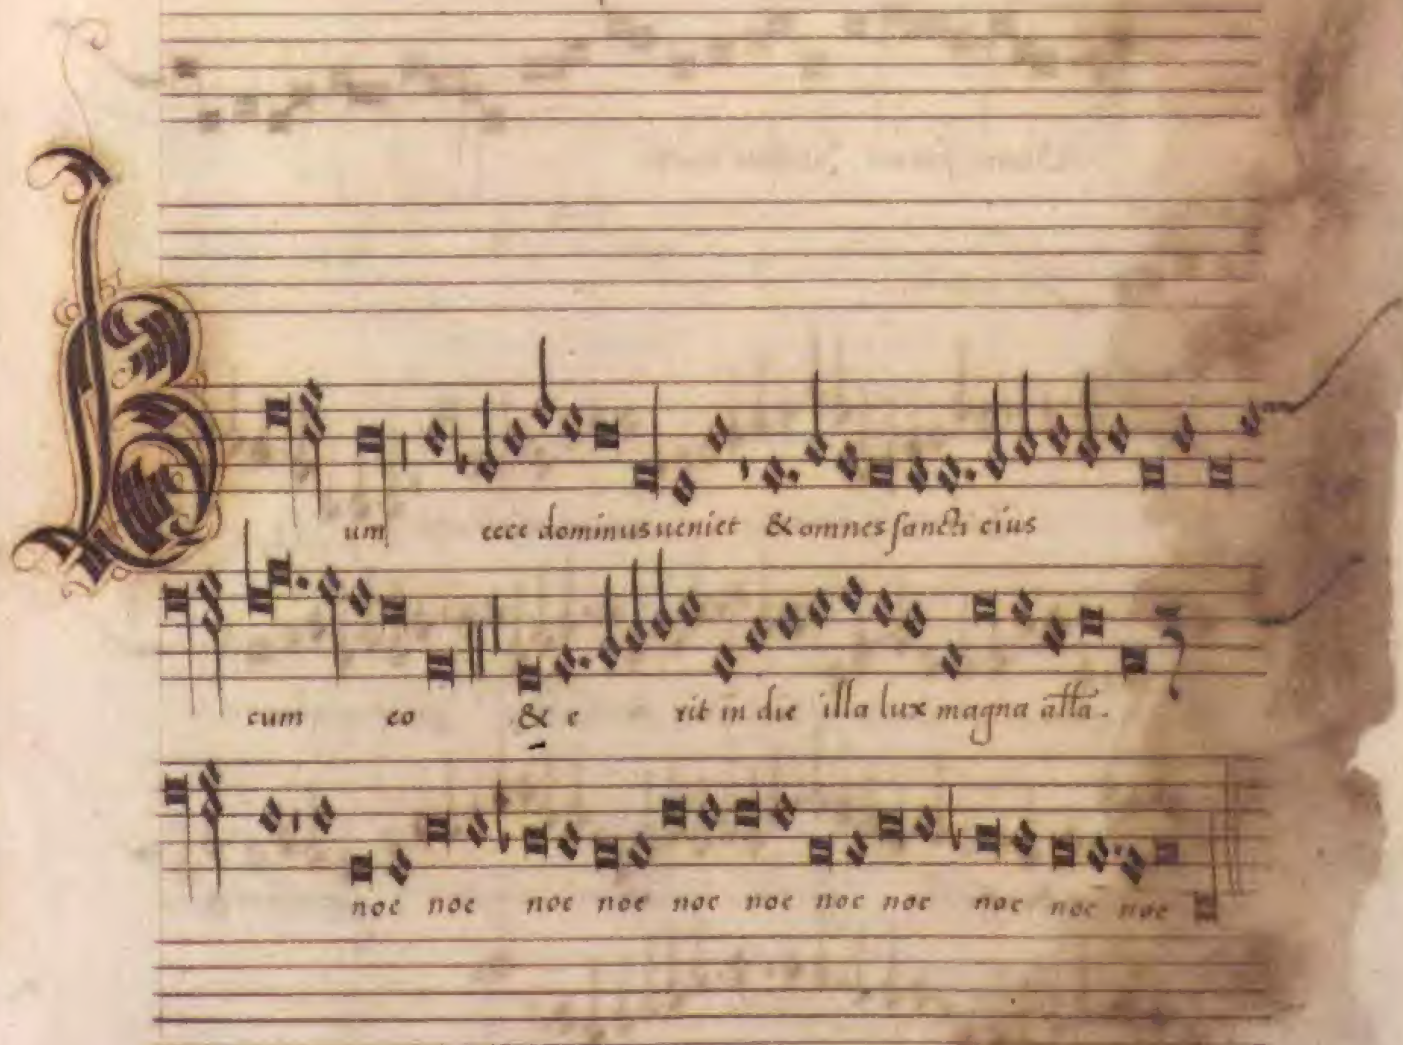 um ecce dominus ueniet & omnes sancti eius
cum eo & e rit in die illa lux magna alla.
noe noe noe noe noe noe noe noe noe noe noe